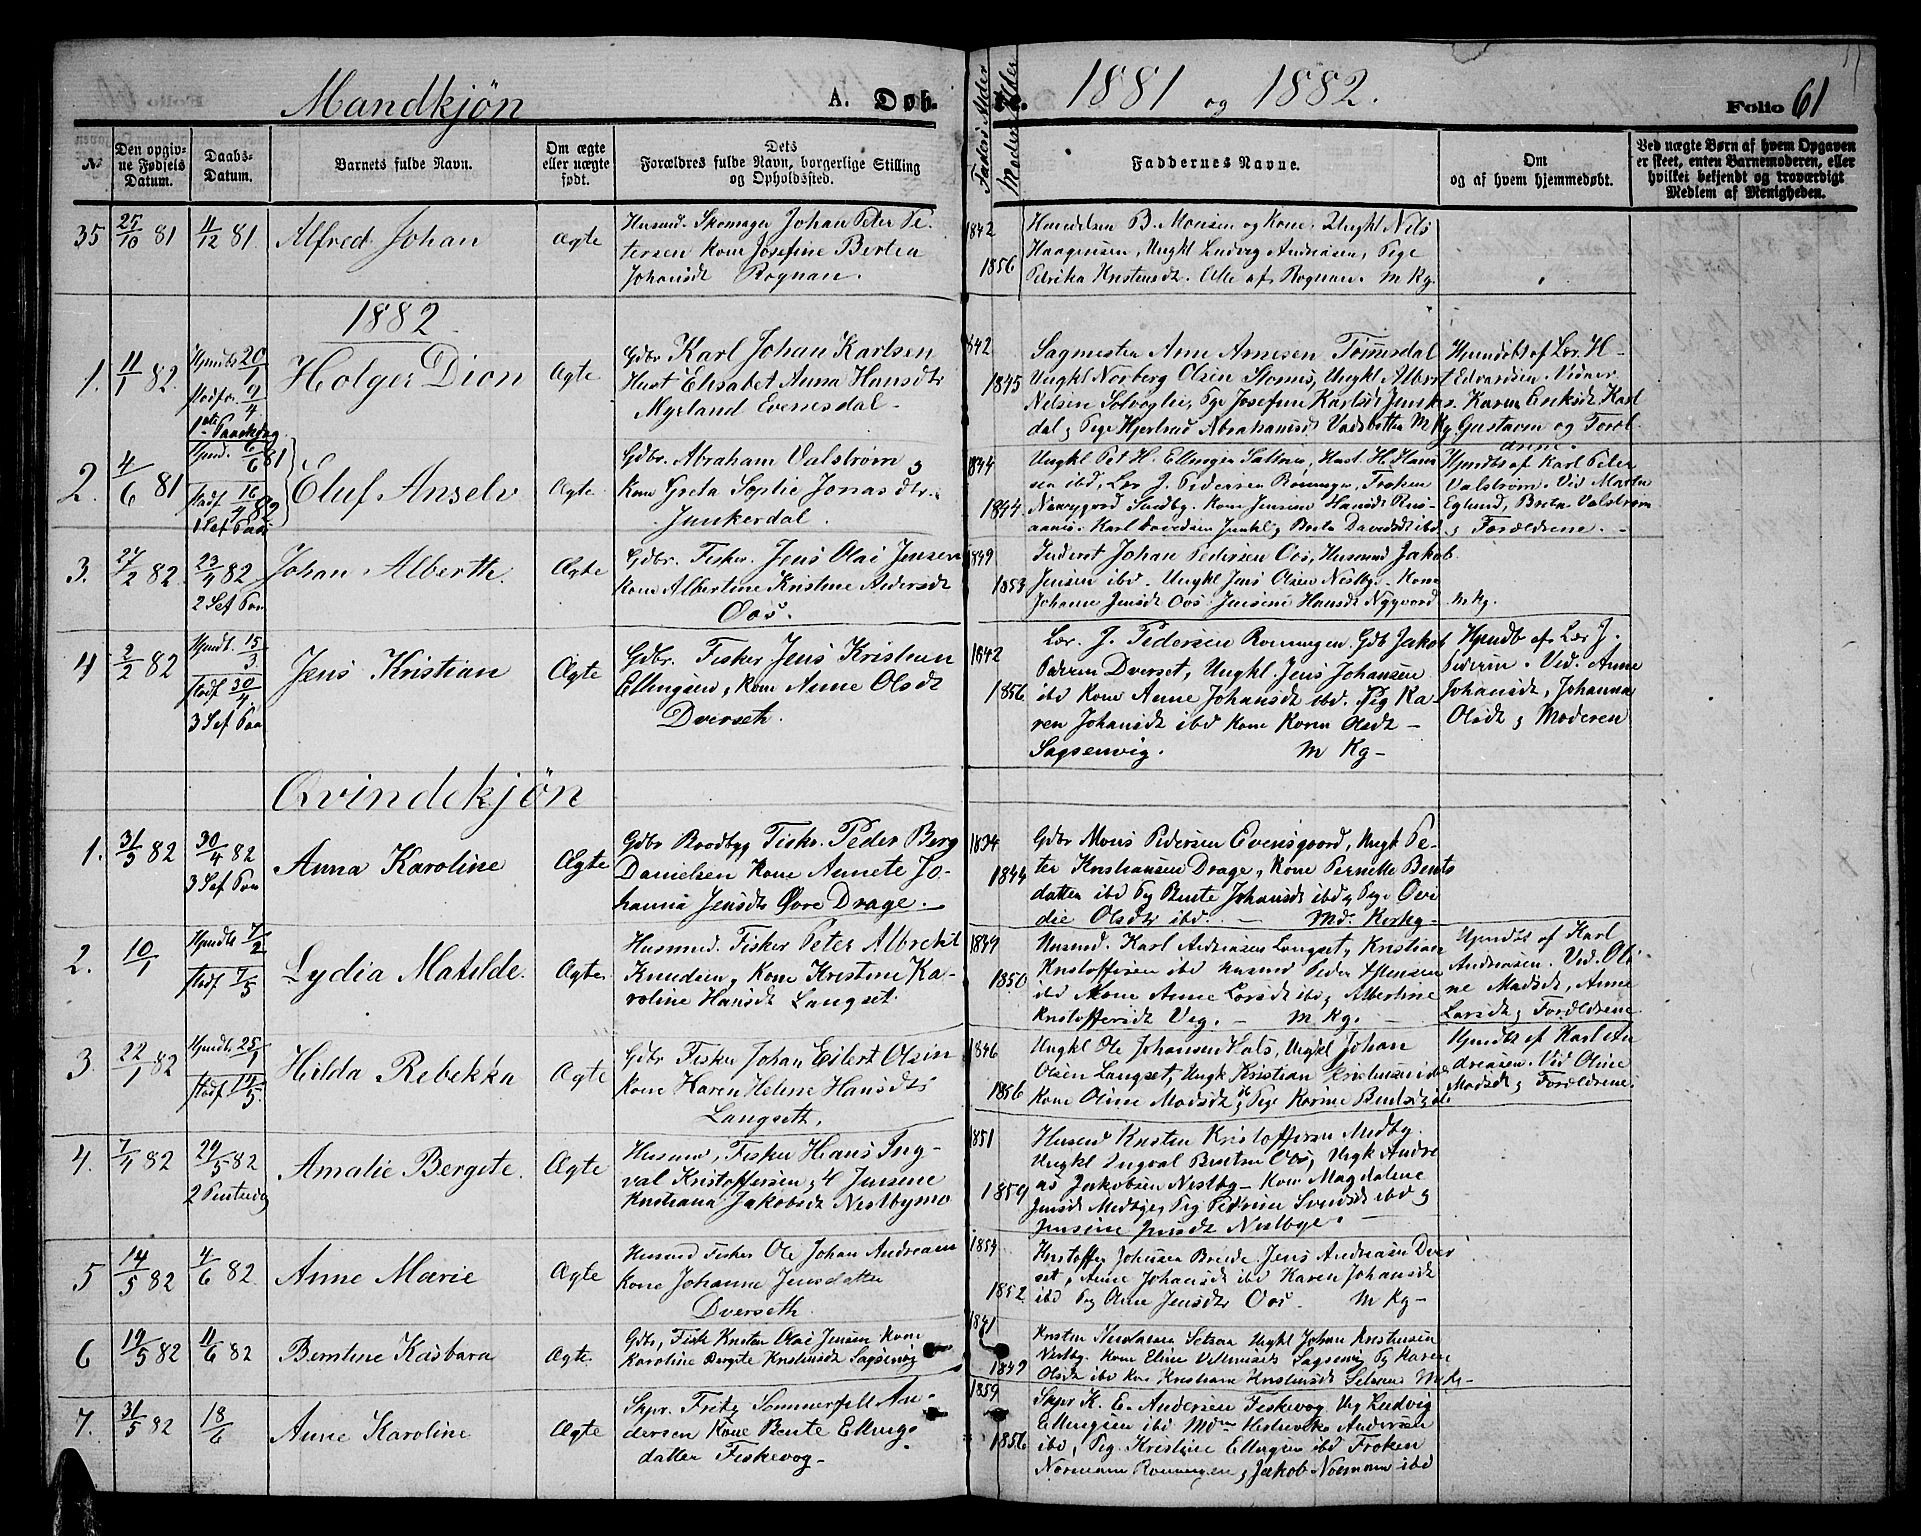 Mandkjön
A. Døb-
te.
1881 og 1882.
Folio 61
No
Den opgiv-
ne Fødsels
Datum.
Daabs-
Datum.
Barnets fulde Navn.
Om ægte
eller uægte
født.
Dets
Forældres fulde Navn, borgerlige Stilling
og Opholdssted.
Faders Alder
Moders Alder
Faddernes Navne.
Om
og af hvem hjemmedøbt.
Ved uægte Børn af hvem Opgaven
er skeet, enten Barnemoderen, eller
hvilket bekjendt og troværdigt
Medlem af Menigheden.
35
25/10 81
11/12 81.
Alfred Johan
Ægte
Husmd. Skomager Johan Peter Pe-
tersen Kone Josefine Bertea
Johansdt Rognan.
1842
1856
Handelsm B. Monsen og Kone. Ungkl Nils
Haagensen, Ungkl Ludvig Andreasen, Pige
Petrika Kristensdt. Alle af Rognan. M Kg.
1882
1.
11/1 82.
Hjmdt 20/1
Stadf. 9/4
1ste Paaskdag
Holger Dion
Ægte
Gdbr Karl Johan Karlsen
Hust Elisabet Anna Hansdtr
Myrland Evenesdal -
1842
1845
Sagmester Arne Arnesen Tømsdal
Ungkl Norberg Olsen Storms, Ungkl Albert
Nelsen Solvoglie, Pge Josefine Karlsdt Junker
dal, Pige Hjertrud Abrahamsdt Vadsbotten M Kg.
Hjemdøbt af Lær. H
Edvardsen. Vidner
Karen Eriksdt Karl
Gustavn og Foræl-
drene.
2.
4/6 81
Hjmd. 6/6 81
Stadf 16/4 82
1 Sef Paa
Eluf Anselv
Ægte
Gdbr. Abraham Valstrøm,
Kone Greta Sophie Jonasdtr.
Junkerdal.
1844
1844
Ungkl Pet H. Ellingsen Saltnes, Hust. H. Hans
sen ibd, Lær J. Pedersen Rønningen, Frøken
Neuygord Sandby. Kone Jensine Hansdt Rus-
aanes. Karl Davidsen Junkl, Berta Davidsdt ibd
Hjmdbt af Karl Peter
Valstrøm. Vid Marta
Eglund, Brita Valstrøm
og Forældrene. -
3.
27/2 82
23/4 82
2 Sef Paa
Johan Alberth
Ægte
Gdbr. Fisker. Jens Olai Jensen
Kone Albertine Kristine Andersdt
Oos.
1849
1853
Inderst Johan Pedersen Oos, Husmnd Jakob
Jensen ibd. Ungkl Jens Olsen Nestby. Kone
Johanne Jensdt Oos. Jensine Hansdt Nygvord M Kg.
4
2/2 82
Hjmdt. 15/3
Stadf 30/4
3 Sef Paa
Jens Kristian
Ægte
Gdbr. Fisker Jens Kristian
Ellingsen, Kone Anne Olsdt
Dverset.
1842
1856
Lær. J. Pedersen Rønningen. Gdb Jakob
Pedersen Dverset, Ungkl. Jens Johansen
ibd Kone Anne Johansdt ibd. Pig Ka-
ren Johansdt ibd Kone Karen Olsdt -
Sagsenvig. M Kg -
Hjmdb af Lær J.
Pedersen. Vid. Anne
Johansdt, Johanna
Olsdt og Moderen
Qvindekjön
1.
31/3 82
30/4 82
3 Sef Paa
Anna Karoline
Ægte
Gdbr Baadbyg Fisker. Peder Berg
Danielsen Kone Annete Jo-
hanna Jensdtr Øvre Drage.
1834
1844
Gdbr Mons Pedersen Evensgaard, Ungk Pe-
ter Kristiansen Drage, Kone Pernelle Bents
datter ibd Pg Bente Johansdt ibd, Pge Ovi
die Olsdtr ibd. - Md. Kirkg -
2.
10/1
Hjmdt 7/2
Stadf 7/5
Lydia Matilde.
Ægte
Husmnd. Fisker Peter Albrekt
Knudsen, Kone Kristine Ka-
roline Hansdt Langset.
1849
1850
Husmd. Karl Andreasen Langset, Kristian
Kristoffersen ibd Husmd Peder Stensen
ibd Kone Anne Larsdt ibd, Albertine
Kristoffersdt Vig. - M Kg. -
Hjmdbt af Karl
Andreasen. Vid. Oli
ne Madsdt, Anne
Larsdt, Forældrene
3
22/1 82
Hjmdt. 25/1
Stadf 14/5.
Hilda Rebekka
Ægte
Gdbr Fisker Johan Eilert Olsen
Kone Karen Helene Hansdtr
Langseth,
1846
1856
Ungkl Ole Johansen Hals, Ungkl Johan
Olsen Langset, Ungk Kristian Kristensen ibd
Kone Oline Madsdt, Pige Karine Bentsd ibd
Hjmdbt af Karl An
dreasen. Vid Oline
Madsdt, Forældrene.
4.
7/4 82
29/5 82
2 Pintsedg
Amalie Bergite.
Ægte
Husmnd, Fisker Hans Ing-
val Kristoffersen, H Jensine
Kristiana Jakobsdt Nestbymo
1851
1859
Husmd Kristen Kristoffersen Medby.
Ungkl Ingval Bentsen Oos, Ungk Andre
as Jakobsen Nestby - Kone Magdalene
Jensdt Medbye, Pig Pedrine Svendsdt ibd og
Jensine Jensdt Nestbye. -
5
14/5 82
4/6 82
Anne Marie
Ægte
Husmd Fisker Ole Johan Andreasen
Kone Johanne Jensdatter
Dverseth.
1854
1852
Kristoffer Johnsen Breide. Jens Andreasen Dver
set, Anne Johansdt ibd Karen Johansdt
ibd Pg Oline Jensdtr Oos. M Kg -
6
19/5 82
11/6 82
Berntine Kasbara
Ægte.
Gdbr, Fisk Kristen Olai Jensen Kone
Karoline Bergite Kristensdt Sagsenvig
1841
1849
Kristen Nicolaisen Setsaa Ungkl Johan Kristensen
Nestby. Kone Eline Velhmsdt Sagsenvig Pg Karen
Olsdt ibd Kone Kristiane Kristensdt Setsaa M Kg -
7.
31/5 82
18/6
Anne Karoline
Ægte
Skpr. Fritz Sommerfelt An-
dersen Kone Bente Ellings-
datter Fiskevog -
1859
1856
Skpr K. E. Andersen Fiskevog Ug Ludvig
Ellingsen ibd Mdm Hedevike Andersen
ibd, Pig. Kristine Ellingsen ibd Frøken
Normann Rønningen, Jakob Normann ibd